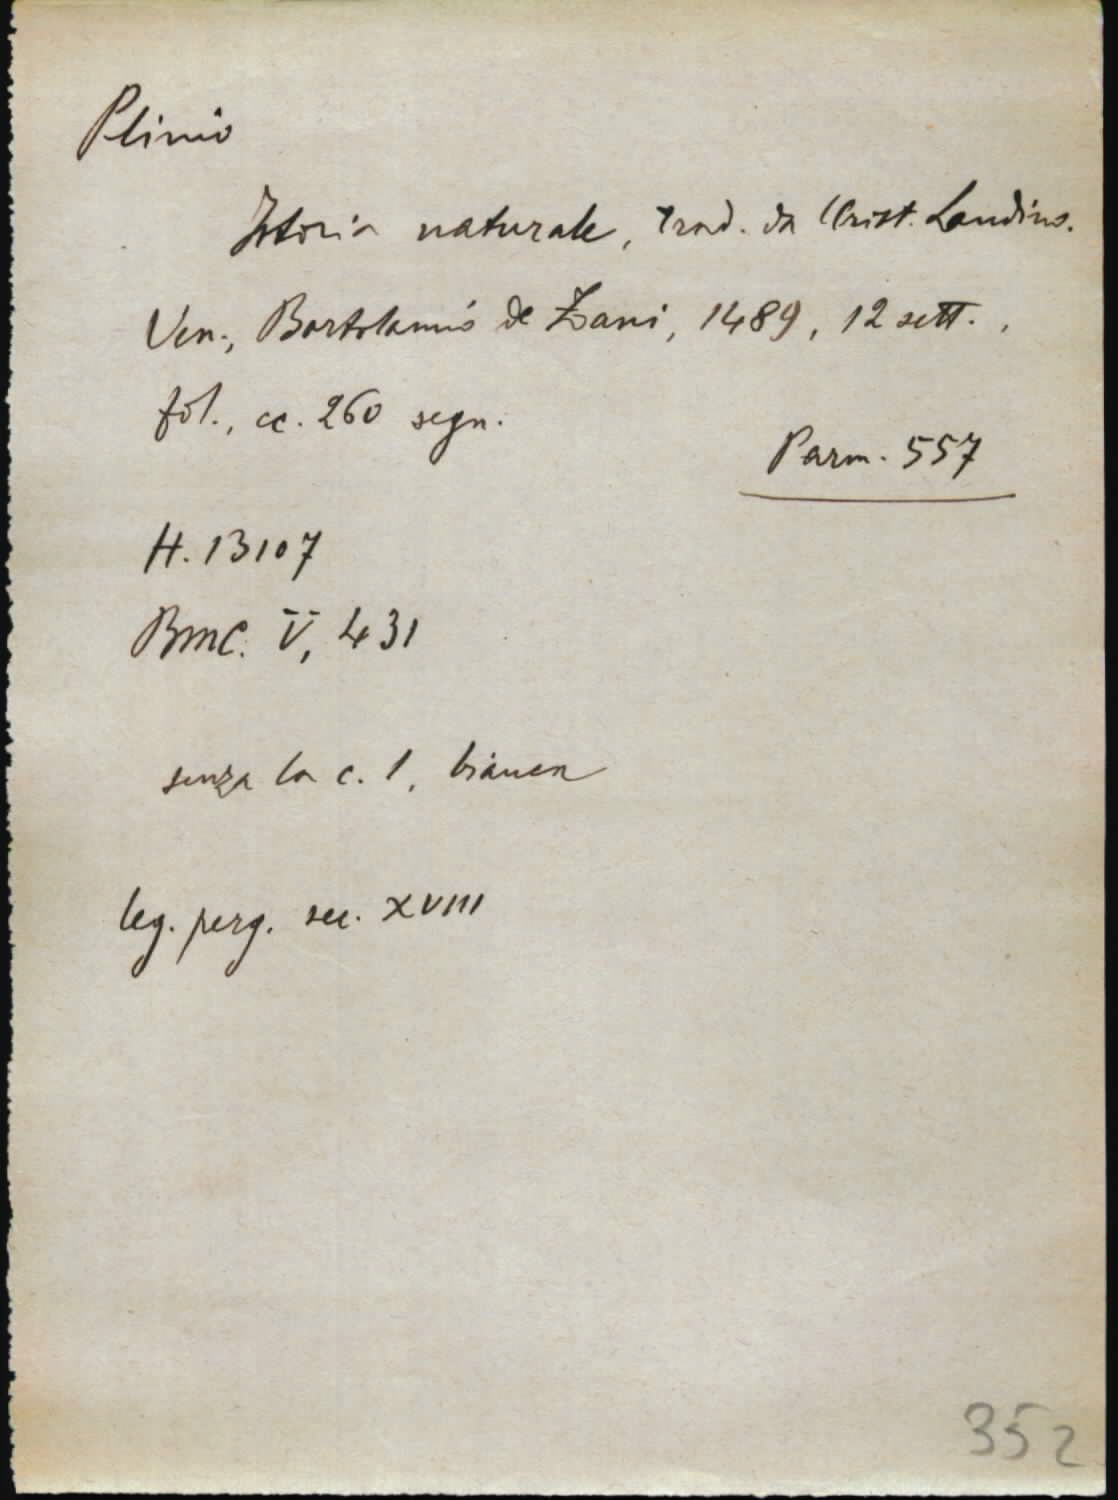 Plinio
Istoria naturale, trad. da Crist. Landino.
Ven., Bortolamio de Zani, 1489, 12 sett.,
fol., cc. 260 segn.
Parm. 557
H. 13107
BMC. V, 431
senza la c. 1, bianca
leg. perg. sec. XVIII
352